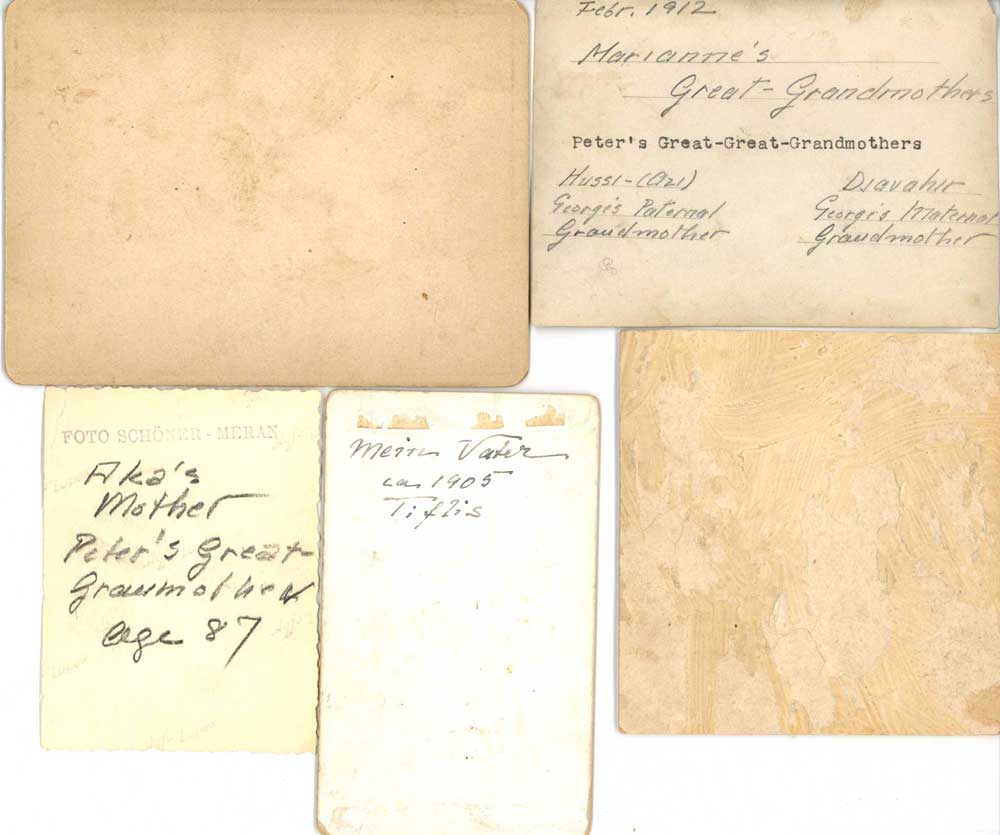 Febr. 1912
Marianne's
Great-Grandmothers
Peter's Great-Great-Grandmothers
Hussi-(Azi)
George's Paternal
Grandmother
Djavahir
George's Maternal
Grandmother
FOTO SCHÖNER - MERAN
Aka's
Mother
Peter's Great-
Graumother
Age 87
Mein Vater
ca 1905
Tiflis